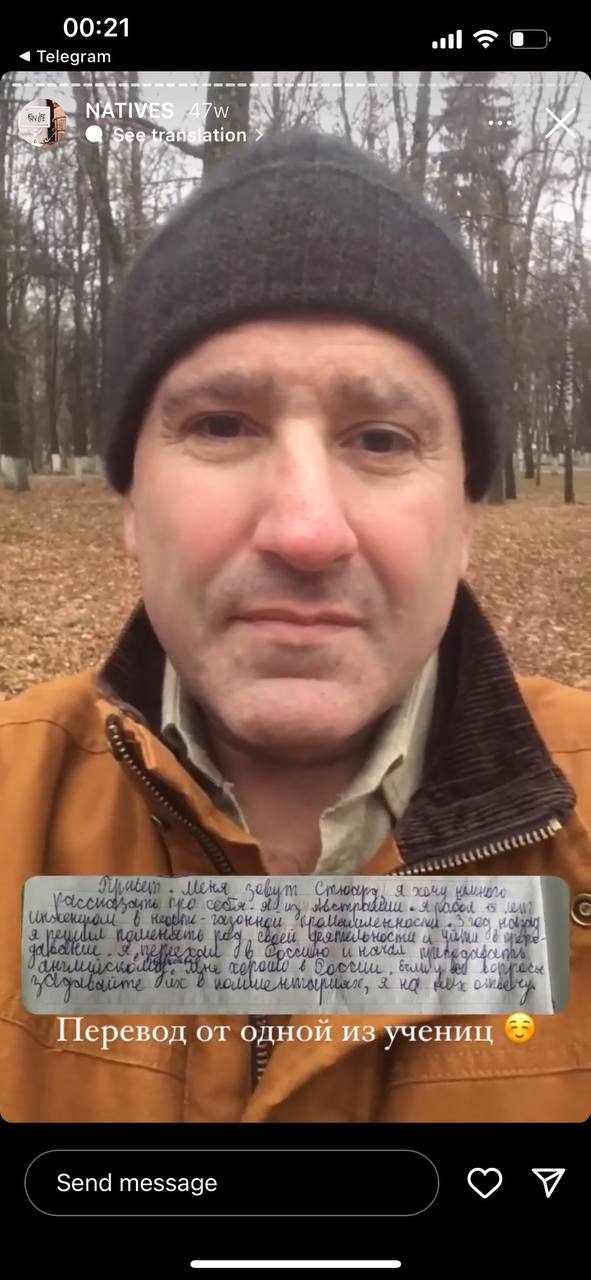 00:21
Telegram
NATIVES 47w
See translation
Привет. Меня зовут Стюарт, я хочу немного
рассказать про себя. Я из Австралии. Я работал 15 лет
инженером в нефте-газонной промышленности. 3 год назад
я решил поменять род своей деятельности и уйти в препо-
давание. Я переехал в Россию и начал преподавать
английскому. Мне хорошо в России. Если у вас вопросы
задавайте их в комментариях, я на них отвечу.
Перевод от одной из учениц
Send message